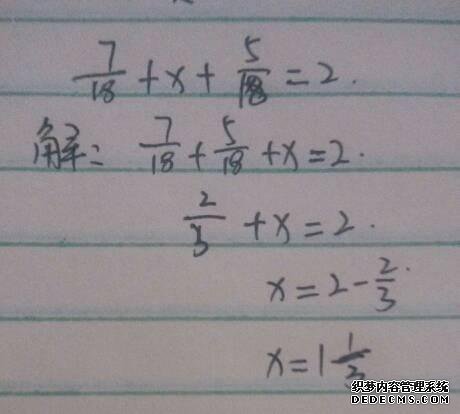 7/18 + x + 5/18 = 2.
解: 7/18 + 5/18 + x = 2.
2/3 + x = 2.
x = 2 - 2/3.
x = 1 1/3
织梦内容管理系统
DEDECMS.COM